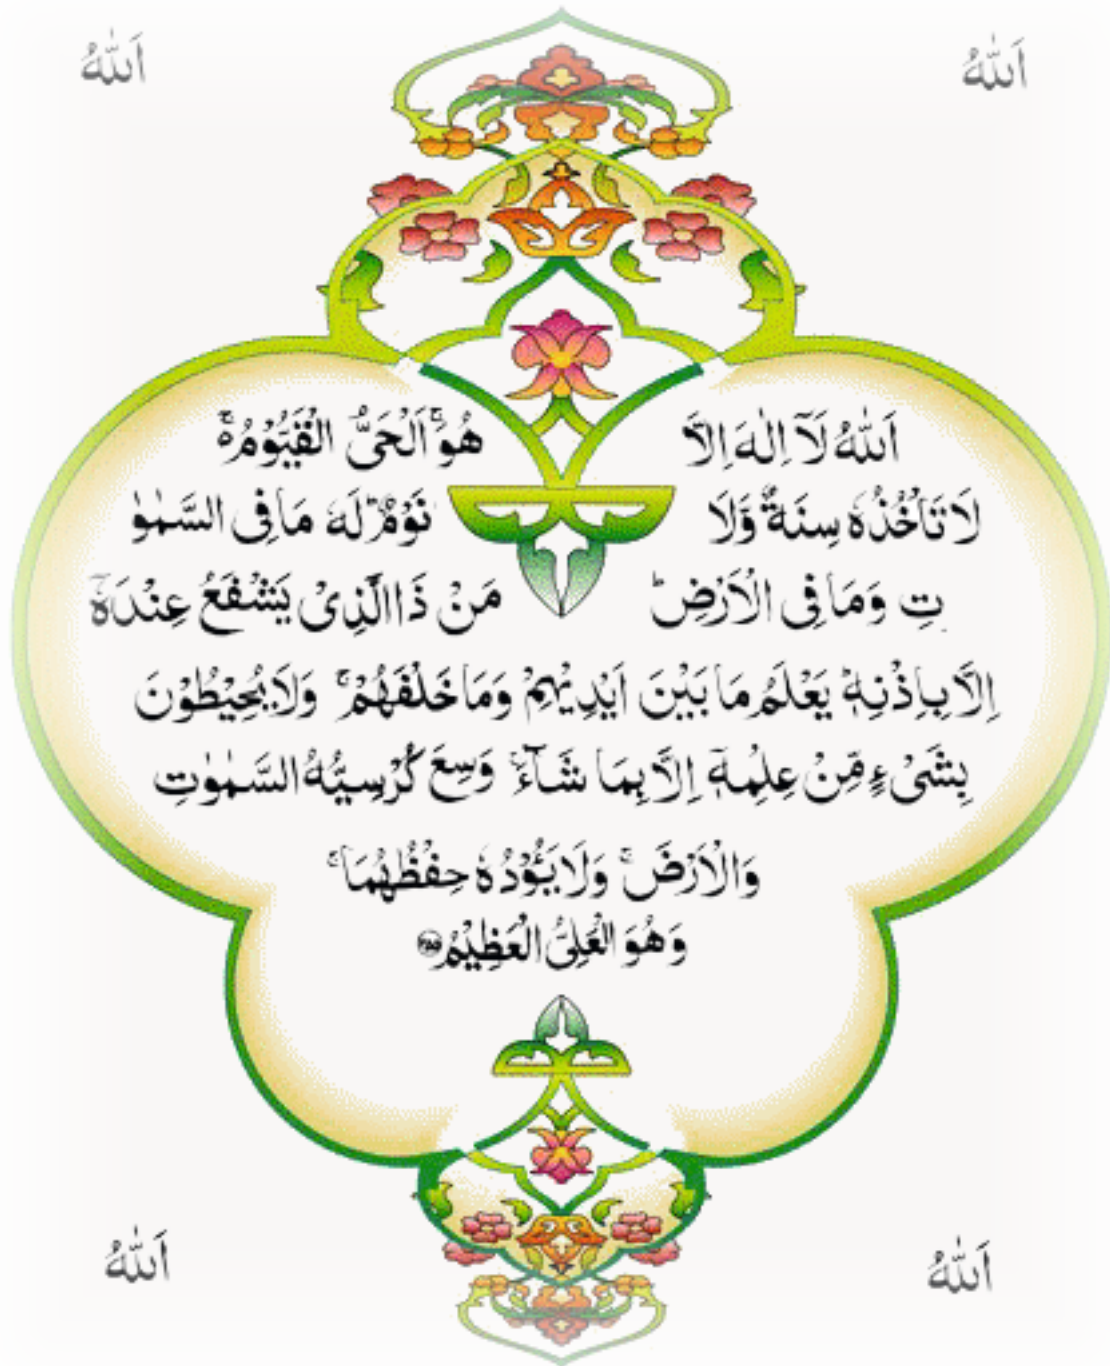 اَللّٰهُ اَللّٰهُ
اَللّٰهُ لَآ اِلٰهَ اِلَّا هُوَۚ اَلْحَىُّ الْقَيُّوْمُ ەۚ
لَا تَاْخُذُهٗ سِنَةٌ وَّلَا نَوْمٌؕ لَهٗ مَا فِى السَّمٰوٰ
تِ وَمَا فِى الْاَرْضِؕ مَنْ ذَا الَّذِىْ يَشْفَعُ عِنْدَهٗۤ
اِلَّا بِاِذْنِهٖؕ يَعْلَمُ مَا بَيْنَ اَيْدِيْهِمْ وَمَا خَلْفَهُمْۚ وَلَا يُحِيْطُوْنَ
بِشَىْءٍ مِّنْ عِلْمِهٖۤ اِلَّا بِمَا شَآءَۚ وَسِعَ كُرْسِيُّهُ السَّمٰوٰتِ
وَالْاَرْضَۚ وَلَا يَـُٔوْدُهٗ حِفْظُهُمَاۚ
وَهُوَ الْعَلِىُّ الْعَظِيْمُ ۲۵۵
اَللّٰهُ اَللّٰهُ